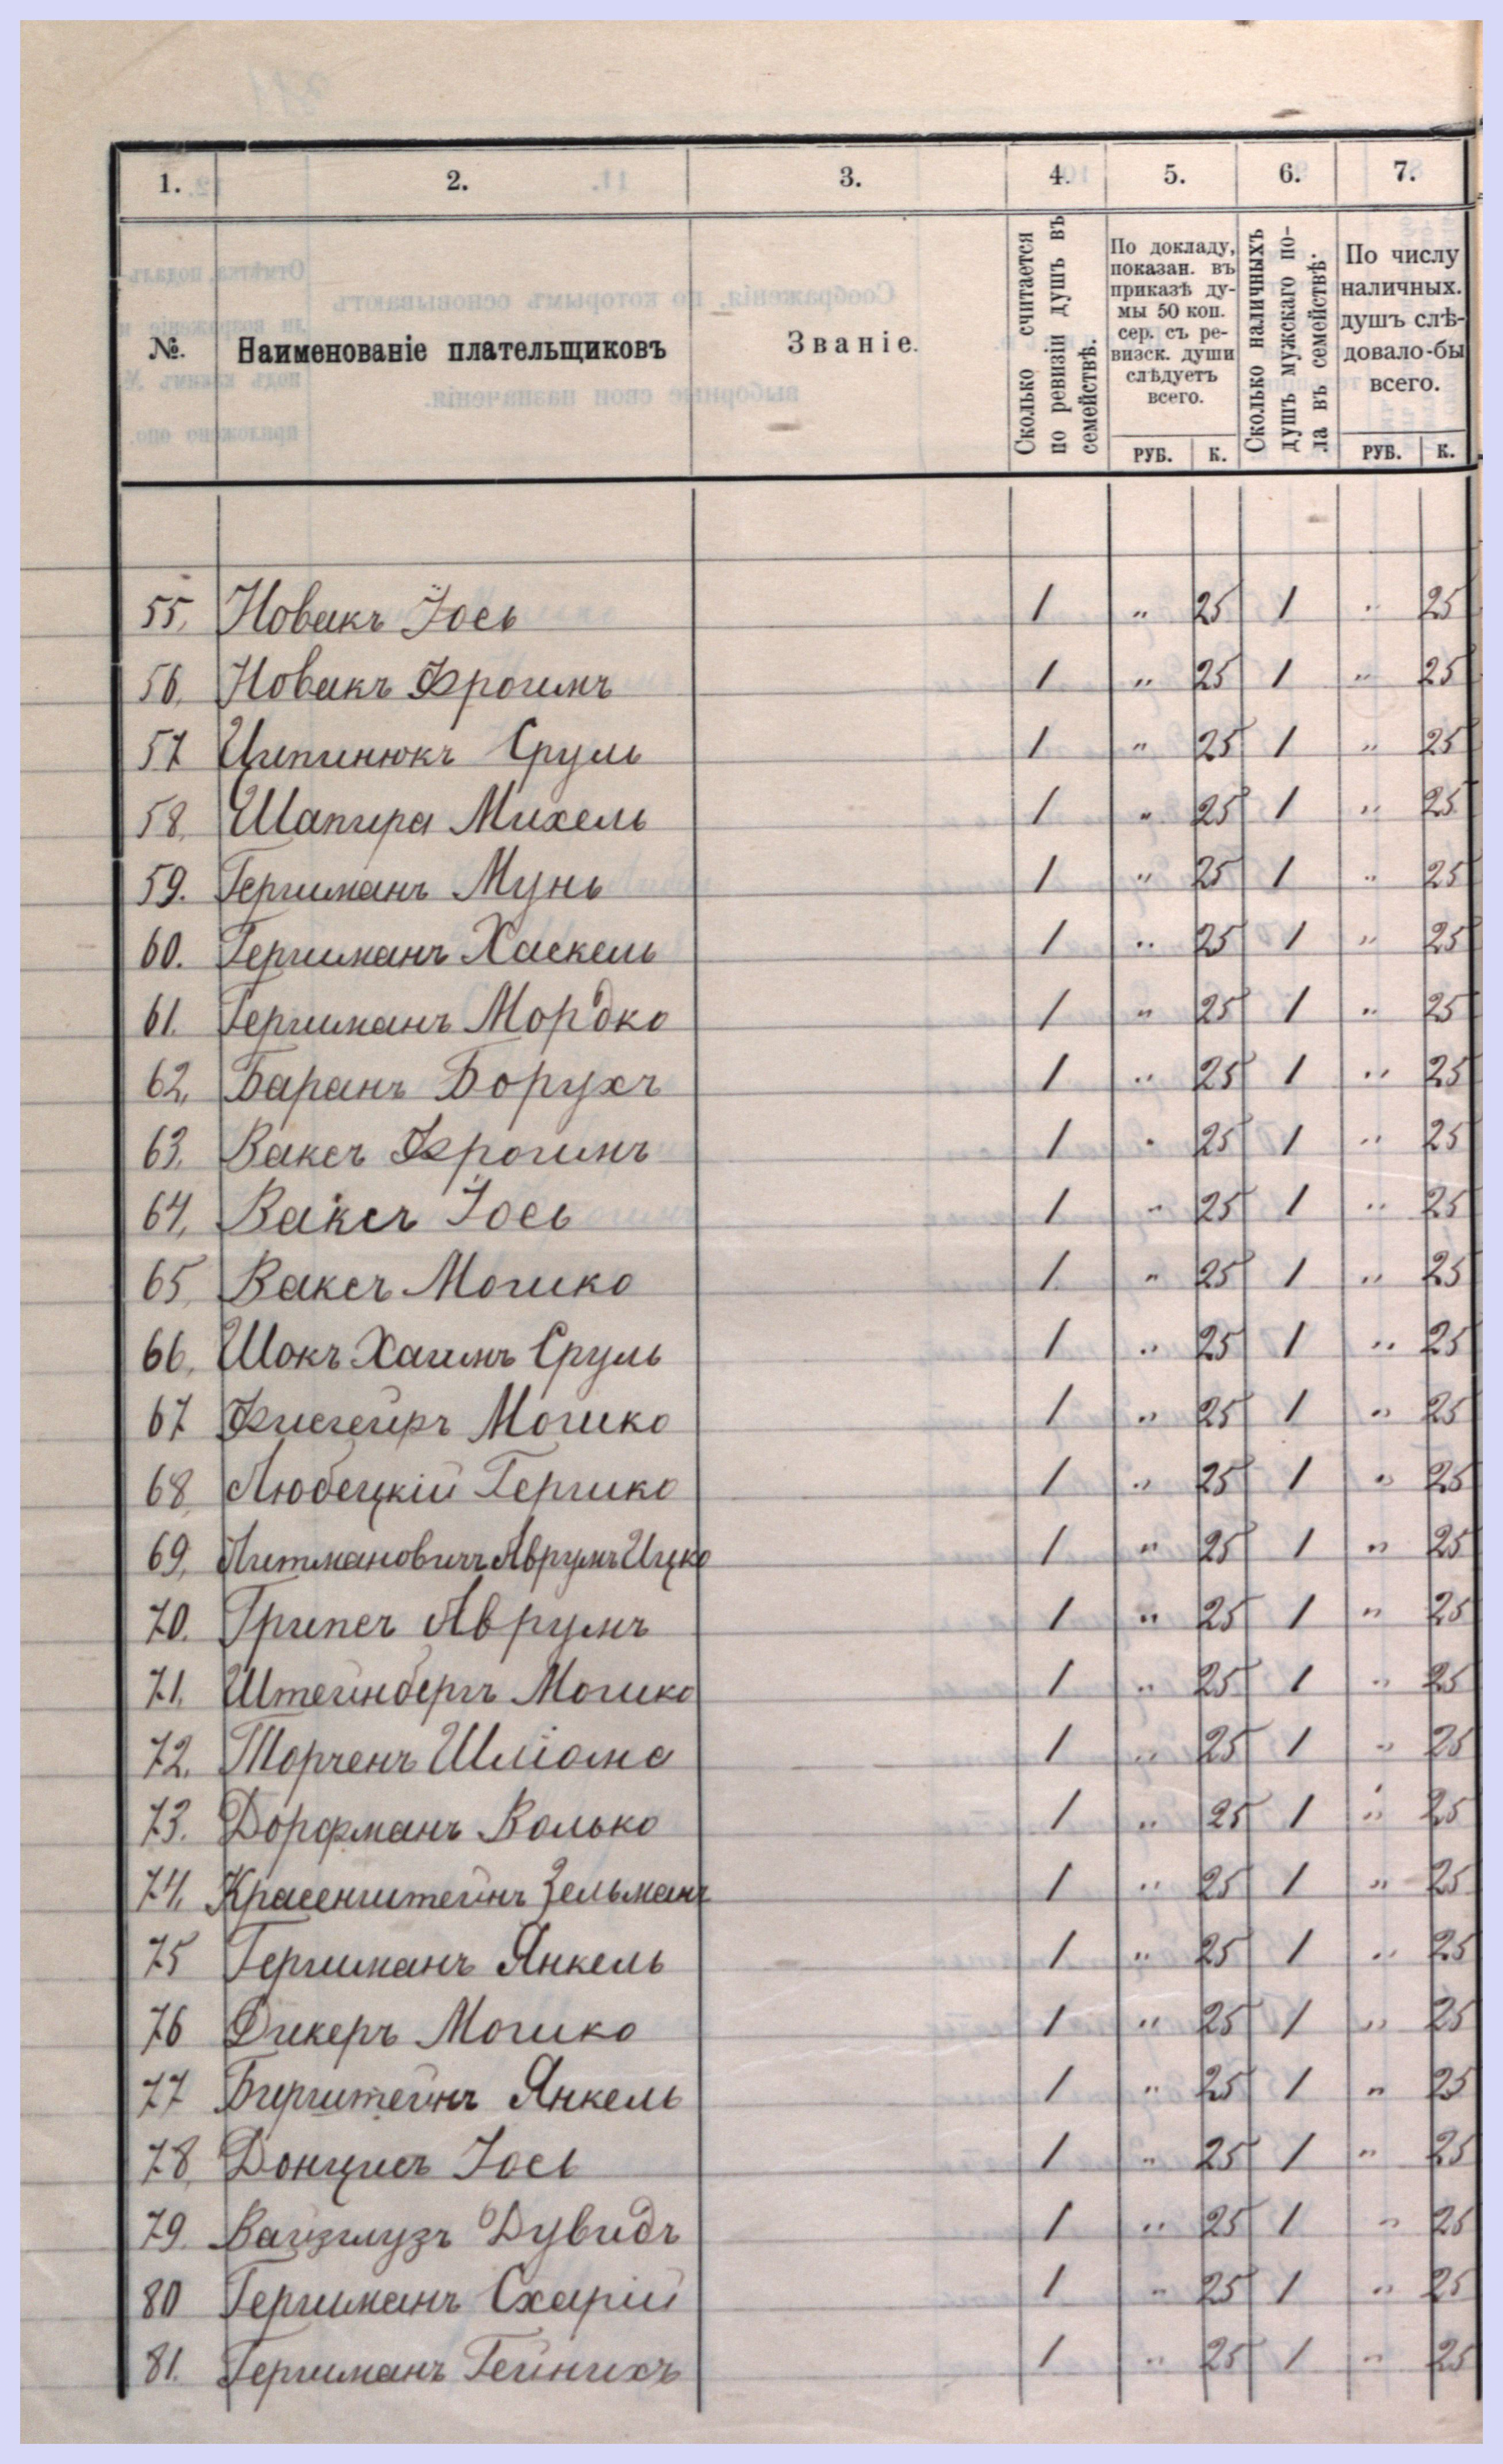 1. 2. 3. 4. 5. 6. 7.
№. Наименованіе плательщиковъ Званіе. Сколько считается по ревизіи душъ въ семействѣ. По докладу, показан. въ приказѣ ду- мы 50 коп. сер. съ ре- визск. души слѣдуетъ всего. Сколько наличныхъ душъ мужскаго по- ла въ семействѣ. По числу наличных. душъ слѣ- довало-бы всего.
РУБ. К. РУБ. К.
55, Новакъ Іось 1 „ 25 1 „ 25
56, Новакъ Фроимъ 1 „ 25 1 „ 25
57 Ципинюкъ Сруль 1 „ 25 1 „ 25
58, Шапира Михель 1 „ 25 1 „ 25
59. Гершманъ Мунь 1 „ 25 1 „ 25
60. Гершманъ Хаскель 1 „ 25 1 „ 25
61. Гершманъ Мордко 1 „ 25 1 „ 25
62, Баранъ Борухъ 1 „ 25 1 „ 25
63, Ваксъ Фроимъ 1 „ 25 1 „ 25
64, Ваксъ Іось 1 „ 25 1 „ 25
65, Ваксъ Мошко 1 „ 25 1 „ 25
66, Шокъ Хаимъ Сруль 1 „ 25 1 „ 25
67 Мошко 1 „ 25 1 „ 25
68, Любецкій Гершко 1 „ 25 1 „ 25
69, Литмановичъ Аврумъ Ицко 1 „ 25 1 „ 25
70. Грипсъ Аврумъ 1 „ 25 1 „ 25
71. Штейнбергъ Мошко 1 „ 25 1 „ 25
72. Торченъ Шліома 1 „ 25 1 „ 25
73. Дорфманъ Волько 1 „ 25 1 „ 25
74, Красенштейнъ Зельманъ 1 „ 25 1 „ 25
75 Гершманъ Янкель 1 „ 25 1 „ 25
76 Дикеръ Мошко 1 „ 25 1 „ 25
77 Бирштейнъ Янкель 1 „ 25 1 „ 25
78, Донцисъ Іось 1 „ 25 1 „ 25
79. Вайзглузъ Дувидъ 1 „ 25 1 „ 25
80 Гершманъ Схарій 1 „ 25 1 „ 25
81. Гершманъ Гейнихъ 1 „ 25 1 „ 25